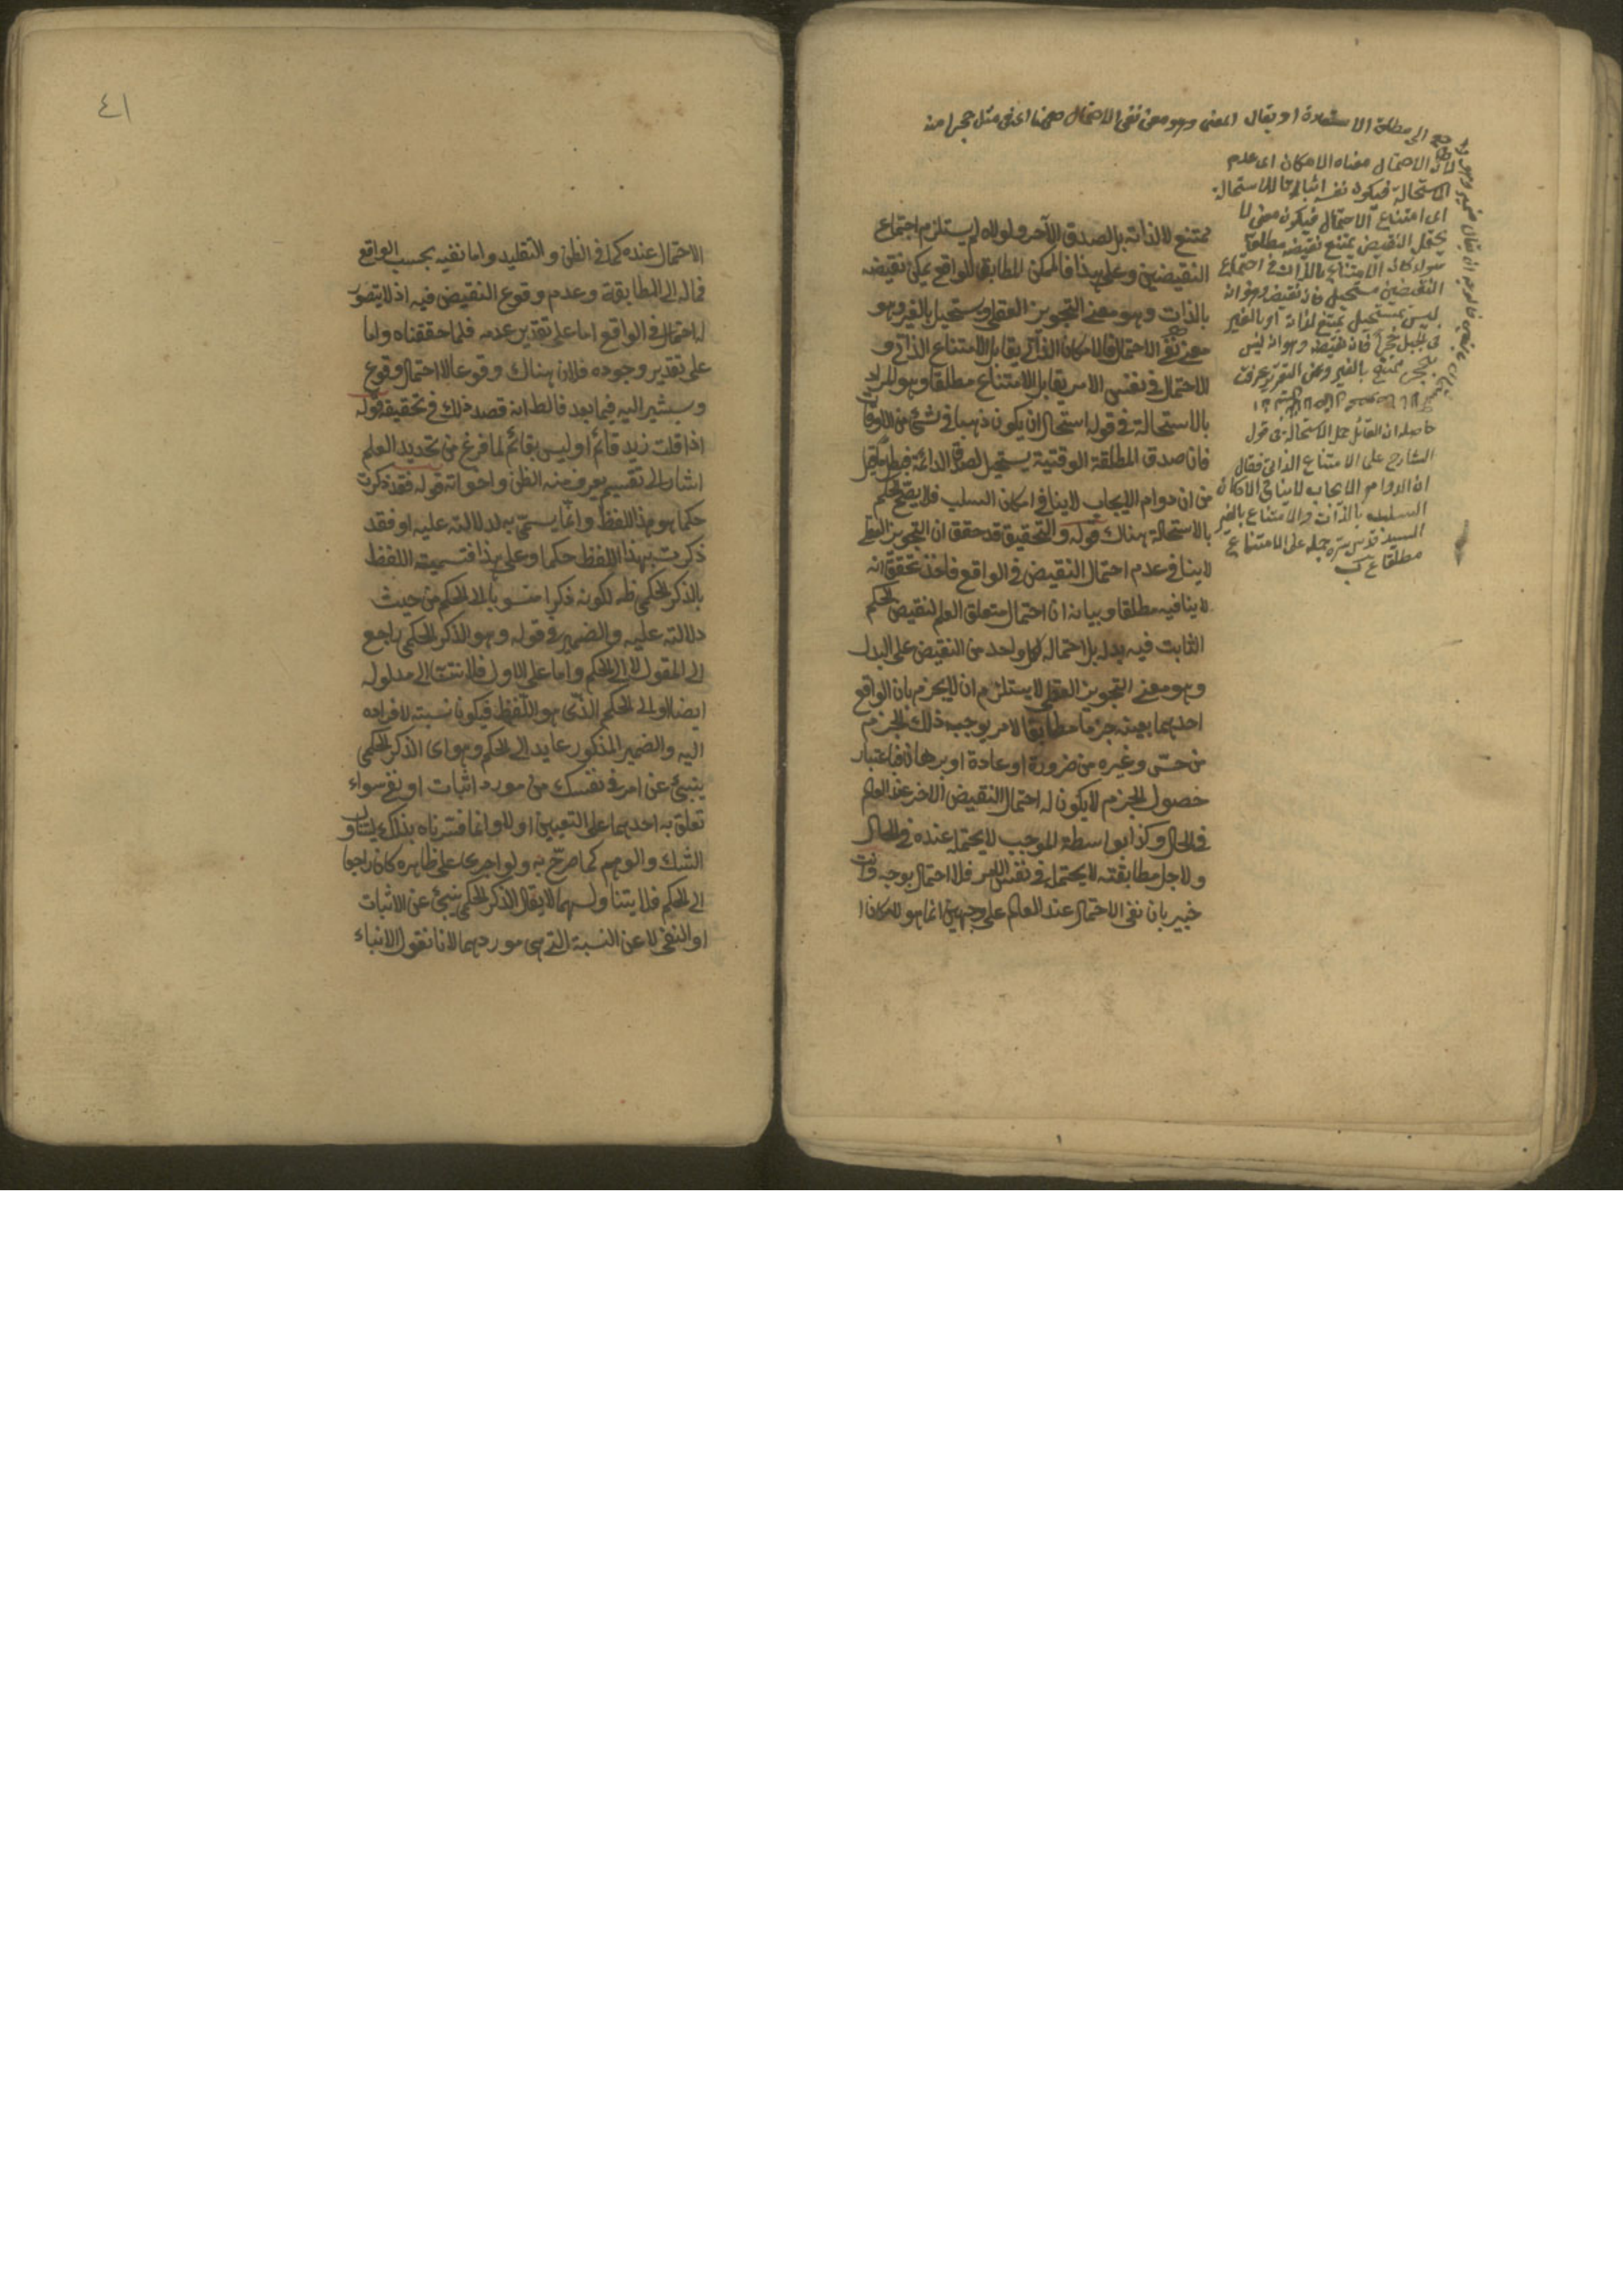 الى مطلق الاستعارة او يقال المعنى وهو معنى نفى الاحتمال ههنا اى فى مثل حجرا منه
لان الاحتمال معناه الامكان اى عدم
الاستحالة فيكون نفيه اثباتا للاستحالة
اى امتناع الاحتمال فيكون معنى لا
يحتمل النقيض يمتنع نقيضه مطلقا
سواء كان الامتناع بالذات فى اجتماع
النقيضين مستحيل فان نقيضه وهو انه
ليس بمستحيل يمتنع لذاته او بالغير
فى الجبل حجر فان نقيضه وهو انه ليس
بحجر ممتنع بالغير
حاصله ان القائل حمل الاستحالة فى قول
الشارح على الامتناع الذاتى فقال
ان الدوام الايجاب لا ينافى الامكان
السلب بالذات والامتناع بالغير
السيد قدس سره حمله على الامتناع
مطلقا
ممتنع لا لذاته بل لصدق الآخر ولولاه لم يستلزم اجتماع
النقيضين وعلى هذا فالممكن المطابق للواقع يمكن نقيضه
بالذات وهو معنى التجويز العقلى ويستحيل بالغير وهو
معنى نفى الاحتمال فالامكان الذاتى يقابل الامتناع الذاتى و
الاحتمال فى نفس الامر يقابل الامتناع مطلقا وهو المراد
بالاستحالة فى قوله استحال ان يكون ذهبا فى شئ من الاوقات
فان صدق المطلقة الوقتية يستحيل لصدق الدائمة فبطل ما قيل
من ان دوام الايجاب لا ينافى امكان السلب فلا يصح الحكم
بالاستحالة هناك قوله والتحقيق قد حقق ان التجويز العقلى
لا ينافى عدم احتمال النقيض فى الواقع فاخذ تحقق انه
لا ينافيه مطلقا وبيانه ان احتمال متعلق العلم لنقيض الحكم
الثابت فيه بدله بل احتماله لكل واحد من النقيض على البدل
وهو معنى التجويز العقلى لا يستلزم ان لا يجزم بان الواقع
احدهما بعينه جزما مطابقا لامر يوجب ذلك الجزم
من حس وغيره من ضرورة او عادة او برهان فباعتبار
حصول الجزم لا يكون له احتمال النقيض الاخر عند العالم
فى الحال وكذا بواسطة الموجب لا يحتمله عنده فى المآل
ولاجل مطابقته لا يحتمله فى نفس الامر فلا احتمال بوجه وانت
خبير بان نفى الاحتمال عند العالم على وجهين انما هو لامكان
٤١
الاحتمال عنده كما فى الظن والتقليد واما نفيه بحسب الواقع
فماله الى المطابقة وعدم وقوع النقيض فيه اذ لا يتصور
له احتمال فى الواقع اما على تقدير عدمه فلما حققناه واما
على تقدير وجوده فلان هناك وقوعا لا احتمال وقوع
وسيشير اليه فيما بعد فالظ انه قصد ذلك فى تحقيقه قوله
اذا قلت زيد قائم او ليس بقائم لما فرغ من تحديد العلم
اشار الى تقسيم يعرف منه الظن واخواته قوله فقد ذكرت
حكما هو هذا اللفظ وانما يسمى به لدلالته عليه او فقد
ذكرت بهذا اللفظ حكما وعلى هذا فتسميته اللفظ
بالذكر الحكمى ظ لكونه ذكرا منسوبا الى الحكم من حيث
دلالته عليه والضمير فى قوله وهو الذكر الحكمى راجع
الى المقول لا الى الحكم واما على الاول فلانتسابه الى مدلوله
ايضا او الى الحكم الذى هو اللفظ فيكون نسبته لافراده
اليه والضمير المذكور عايد الى الحكم وهو اى الذكر الحكمى
ينبئ عن امر فى نفسك من مورد اثبات او نفى سواء
تعلق به احدهما على التعيين او لا وانما فسرناه بذلك ليتناول
الشك والوهم كما صرح به ولو اجرى على ظاهره كان راجعا
الى الحكم فلا يتناولهما لا يقال الذكر الحكمى ينبئ عن الاثبات
او النفى لا عن النسبة التى هى موردهما لانا نقول الانباء